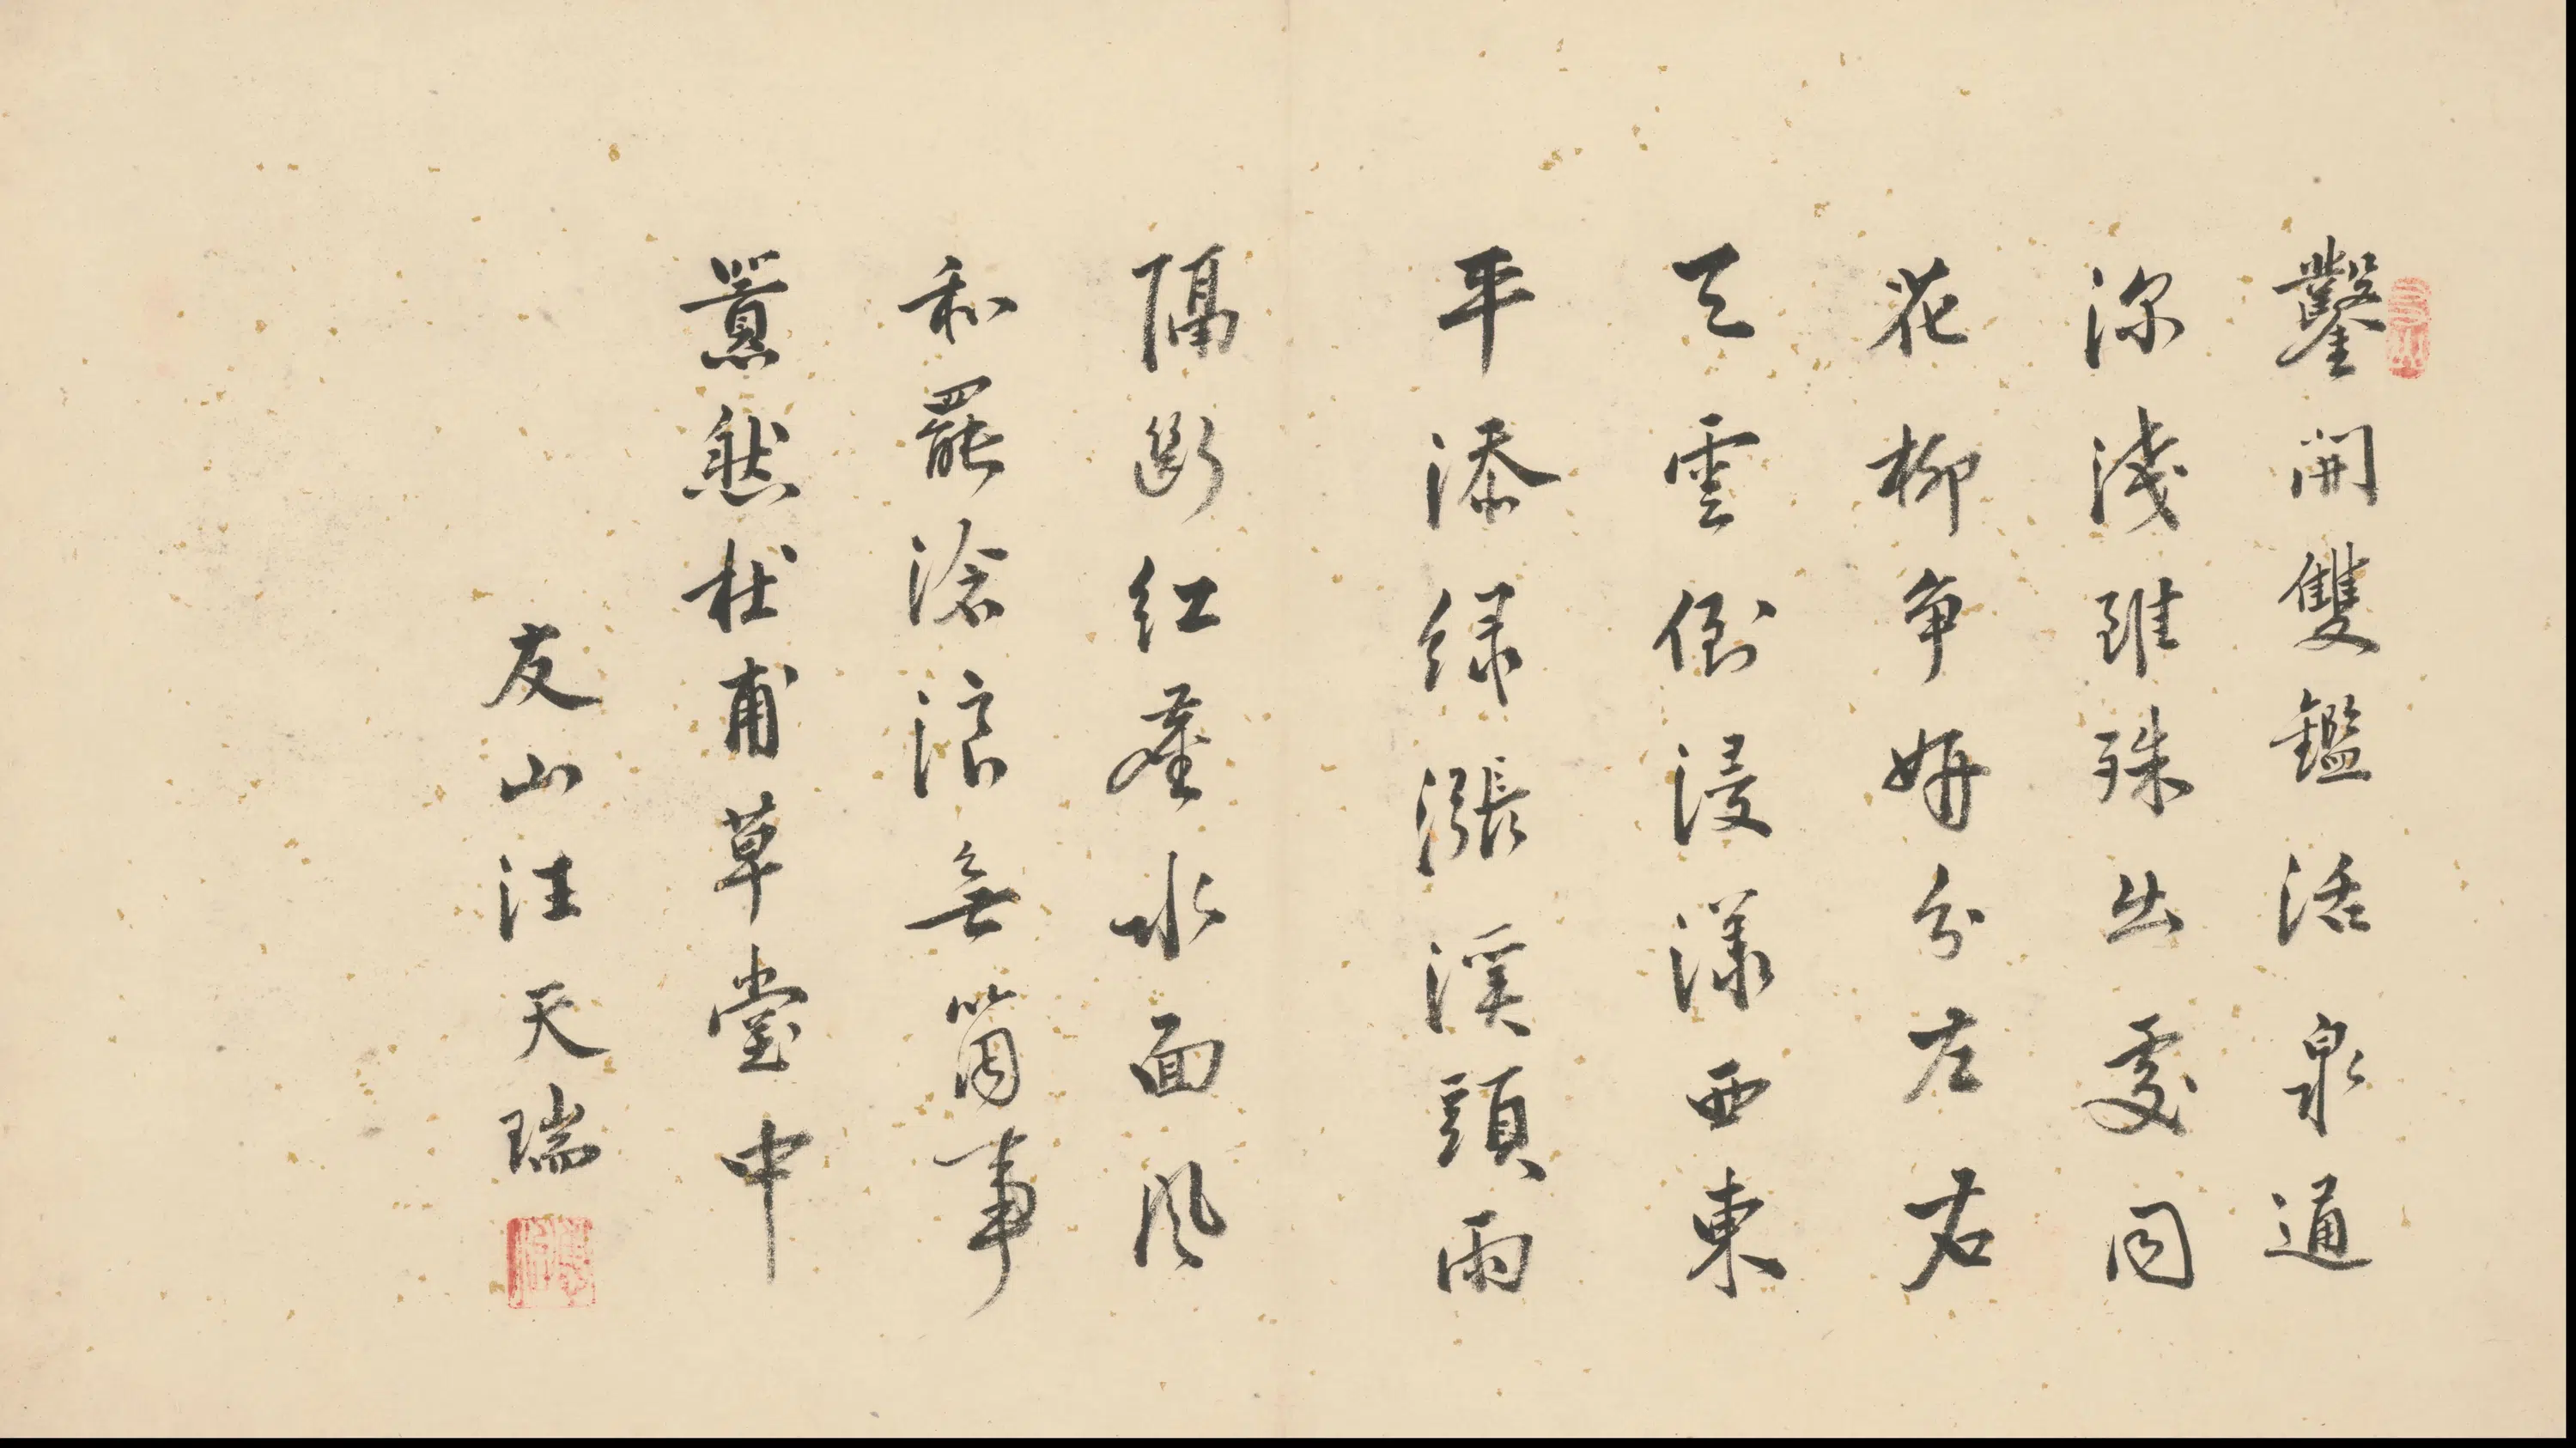 鑿開雙鑑活泉通
深淺雖殊出處同
花柳爭妍分左右
天雲倒浸漾西東
平添綠漲溪頭雨
隔斷紅塵水面風
和罷滄浪無箇事
囂然杜甫草堂中
友山汪天瑞